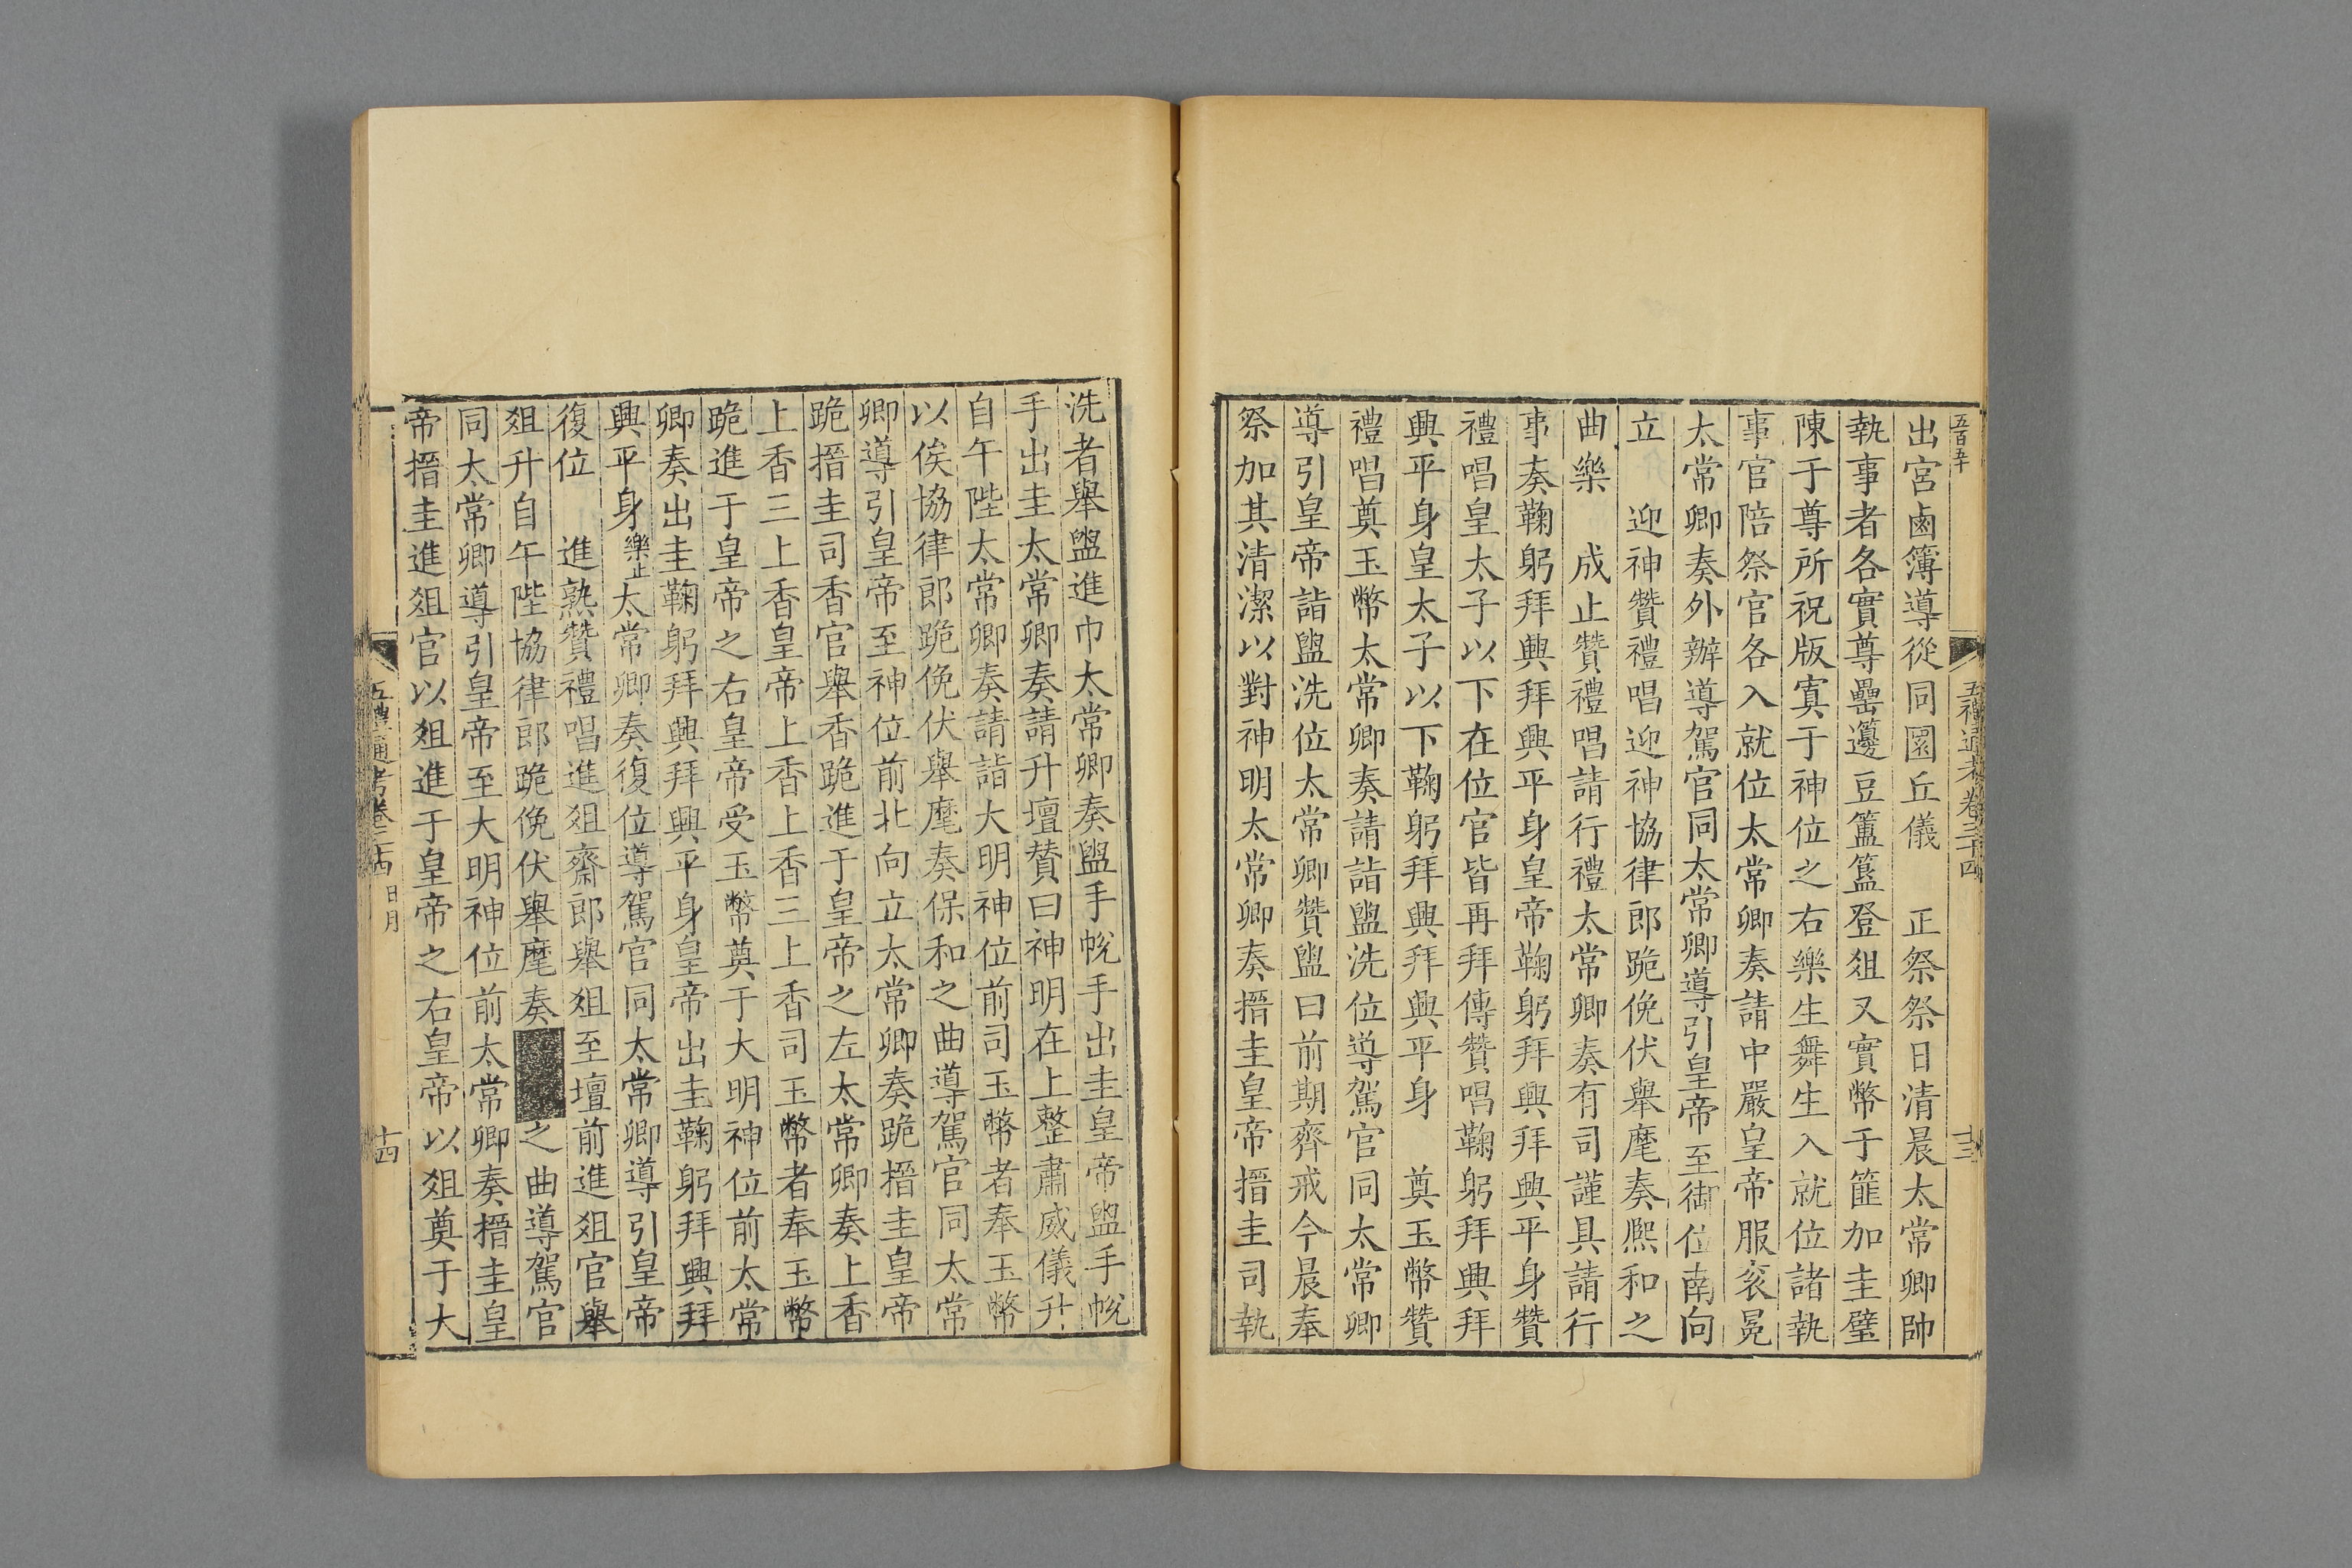 五百五十
五禮通考卷三十四
十三
出宮鹵簿導從同圜丘儀　正祭祭日清晨太常卿帥
執事者各實尊罍籩豆簠簋登俎又實幣于篚加圭璧
陳于尊所祝版寘于神位之右樂生舞生入就位諸執
事官陪祭官各入就位太常卿奏請中嚴皇帝服衮冕
太常卿奏外辦導駕官同太常卿導引皇帝至御位南向
立　迎神贊禮唱迎神協律郎跪俛伏舉麾奏熈和之
曲樂　成止贊禮唱請行禮太常卿奏有司謹具請行
事奏鞠躬拜興拜興平身皇帝鞠躬拜興拜興平身贊
禮唱皇太子以下在位官皆再拜傳贊唱鞠躬拜興拜
興平身皇太子以下鞠躬拜興拜興平身　奠玉幣贊
禮唱奠玉幣太常卿奏請詣盥洗位導駕官同太常卿
導引皇帝詣盥洗位太常卿贊盥曰前期齊戒今晨奉
祭加其清潔以對神明太常卿奏搢圭皇帝搢圭司執
洗者舉盥進巾太常卿奏盥手帨手出圭皇帝盥手帨
手出圭太常卿奏請升壇贊曰神明在上整肅威儀升
自午陛太常卿奏請詣大明神位前司玉幣者奉玉幣
以俟協律郎跪俛伏舉麾奏保和之曲導駕官同太常
卿導引皇帝至神位前北向立太常卿奏跪搢圭皇帝
跪搢圭司香官舉香跪進于皇帝之左太常卿奏上香
上香三上香皇帝上香上香三上香司玉幣者奉玉幣
跪進于皇帝之右皇帝受玉幣奠于大明神位前太常
卿奏出圭鞠躬拜興拜興平身皇帝出圭鞠躬拜興拜
興平身樂止太常卿奏復位導駕官同太常卿導引皇帝
復位　進熟贊禮唱進俎齋郎舉俎至壇前進俎官舉
俎升自午陛協律郎跪俛伏舉麾奏之曲導駕官
同太常卿導引皇帝至大明神位前太常卿奏搢圭皇
帝搢圭進俎官以俎進于皇帝之右皇帝以俎奠于大
五禮通考卷三十四 日月
十四